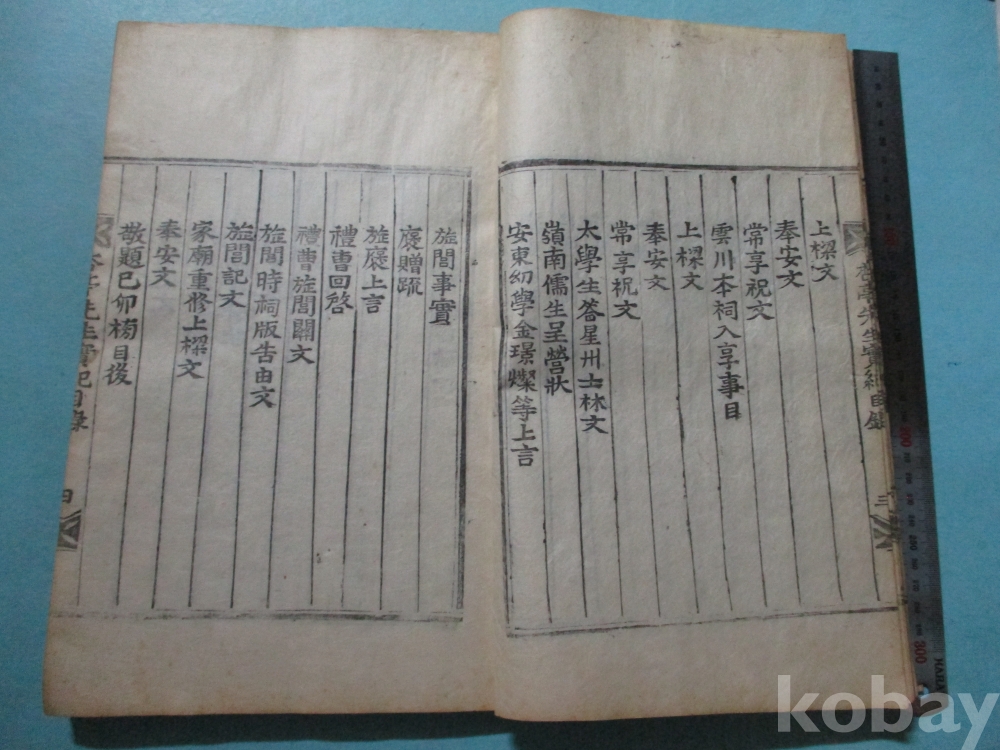 上樑文
奉安文
常享祝文
雲川本祠入享事目
上樑文
奉安文
常享祝文
太學生答星州士林文
嶺南儒生呈營狀
安東幼學金璟燦等上言
旌閭事實
褒贈䟽
旌褒上言
禮曹回啓
禮曹旌閭關文
旌閭時祠版告由文
旌閭記文
家廟重修上樑文
奉安文
敬題己卯榜目後
先生實紀目錄
三
先生實紀目錄
四
kobay